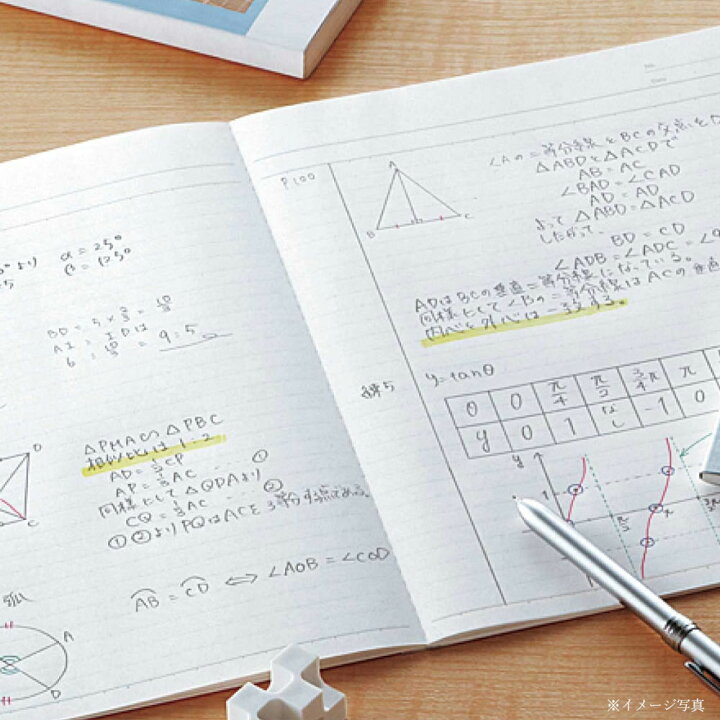 α = 25°
β = 125°
BD = 5 × 2/3 = 10/3
6 : 10/3 = 9 : 5
△PMA ∽ △PBC
相似比は 1 : 2
AP = 1/3 AC … ①
同様にして △QDAより
CQ = 1/3 AC … ②
①②よりPQはACを3等分する点である。
弧
AB = CD ⇔ ∠AOB = ∠COD
D
C
A
D
No.
Date
P100
A
B
C
∠Aの二等分線とBCの交点を
△ABDと△ACDで
AB = AC
∠BAD = ∠CAD
AD = AD
よって △ABD = △ACD
したがって、
BD = CD
∠ADB = ∠ADC =
ADはBCの垂直二等分線になっている。
同様にして∠Bの二等分線はACの垂直
内心と外心は一致する。
練5
y = tanθ
θ 0 π/4 π/2 3/4π π
y 0 1 なし -1 0
y
1
π/2
π
※イメージ写真